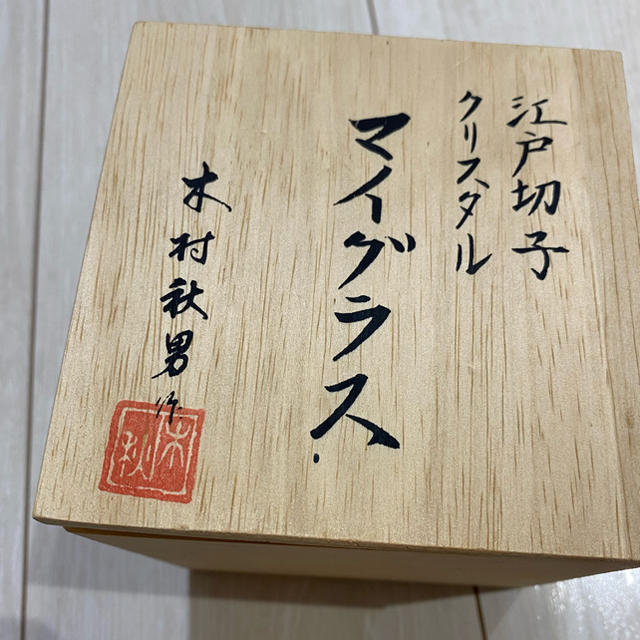 江戸切子
クリスタル
マイグラス
木村秋男作
木秋